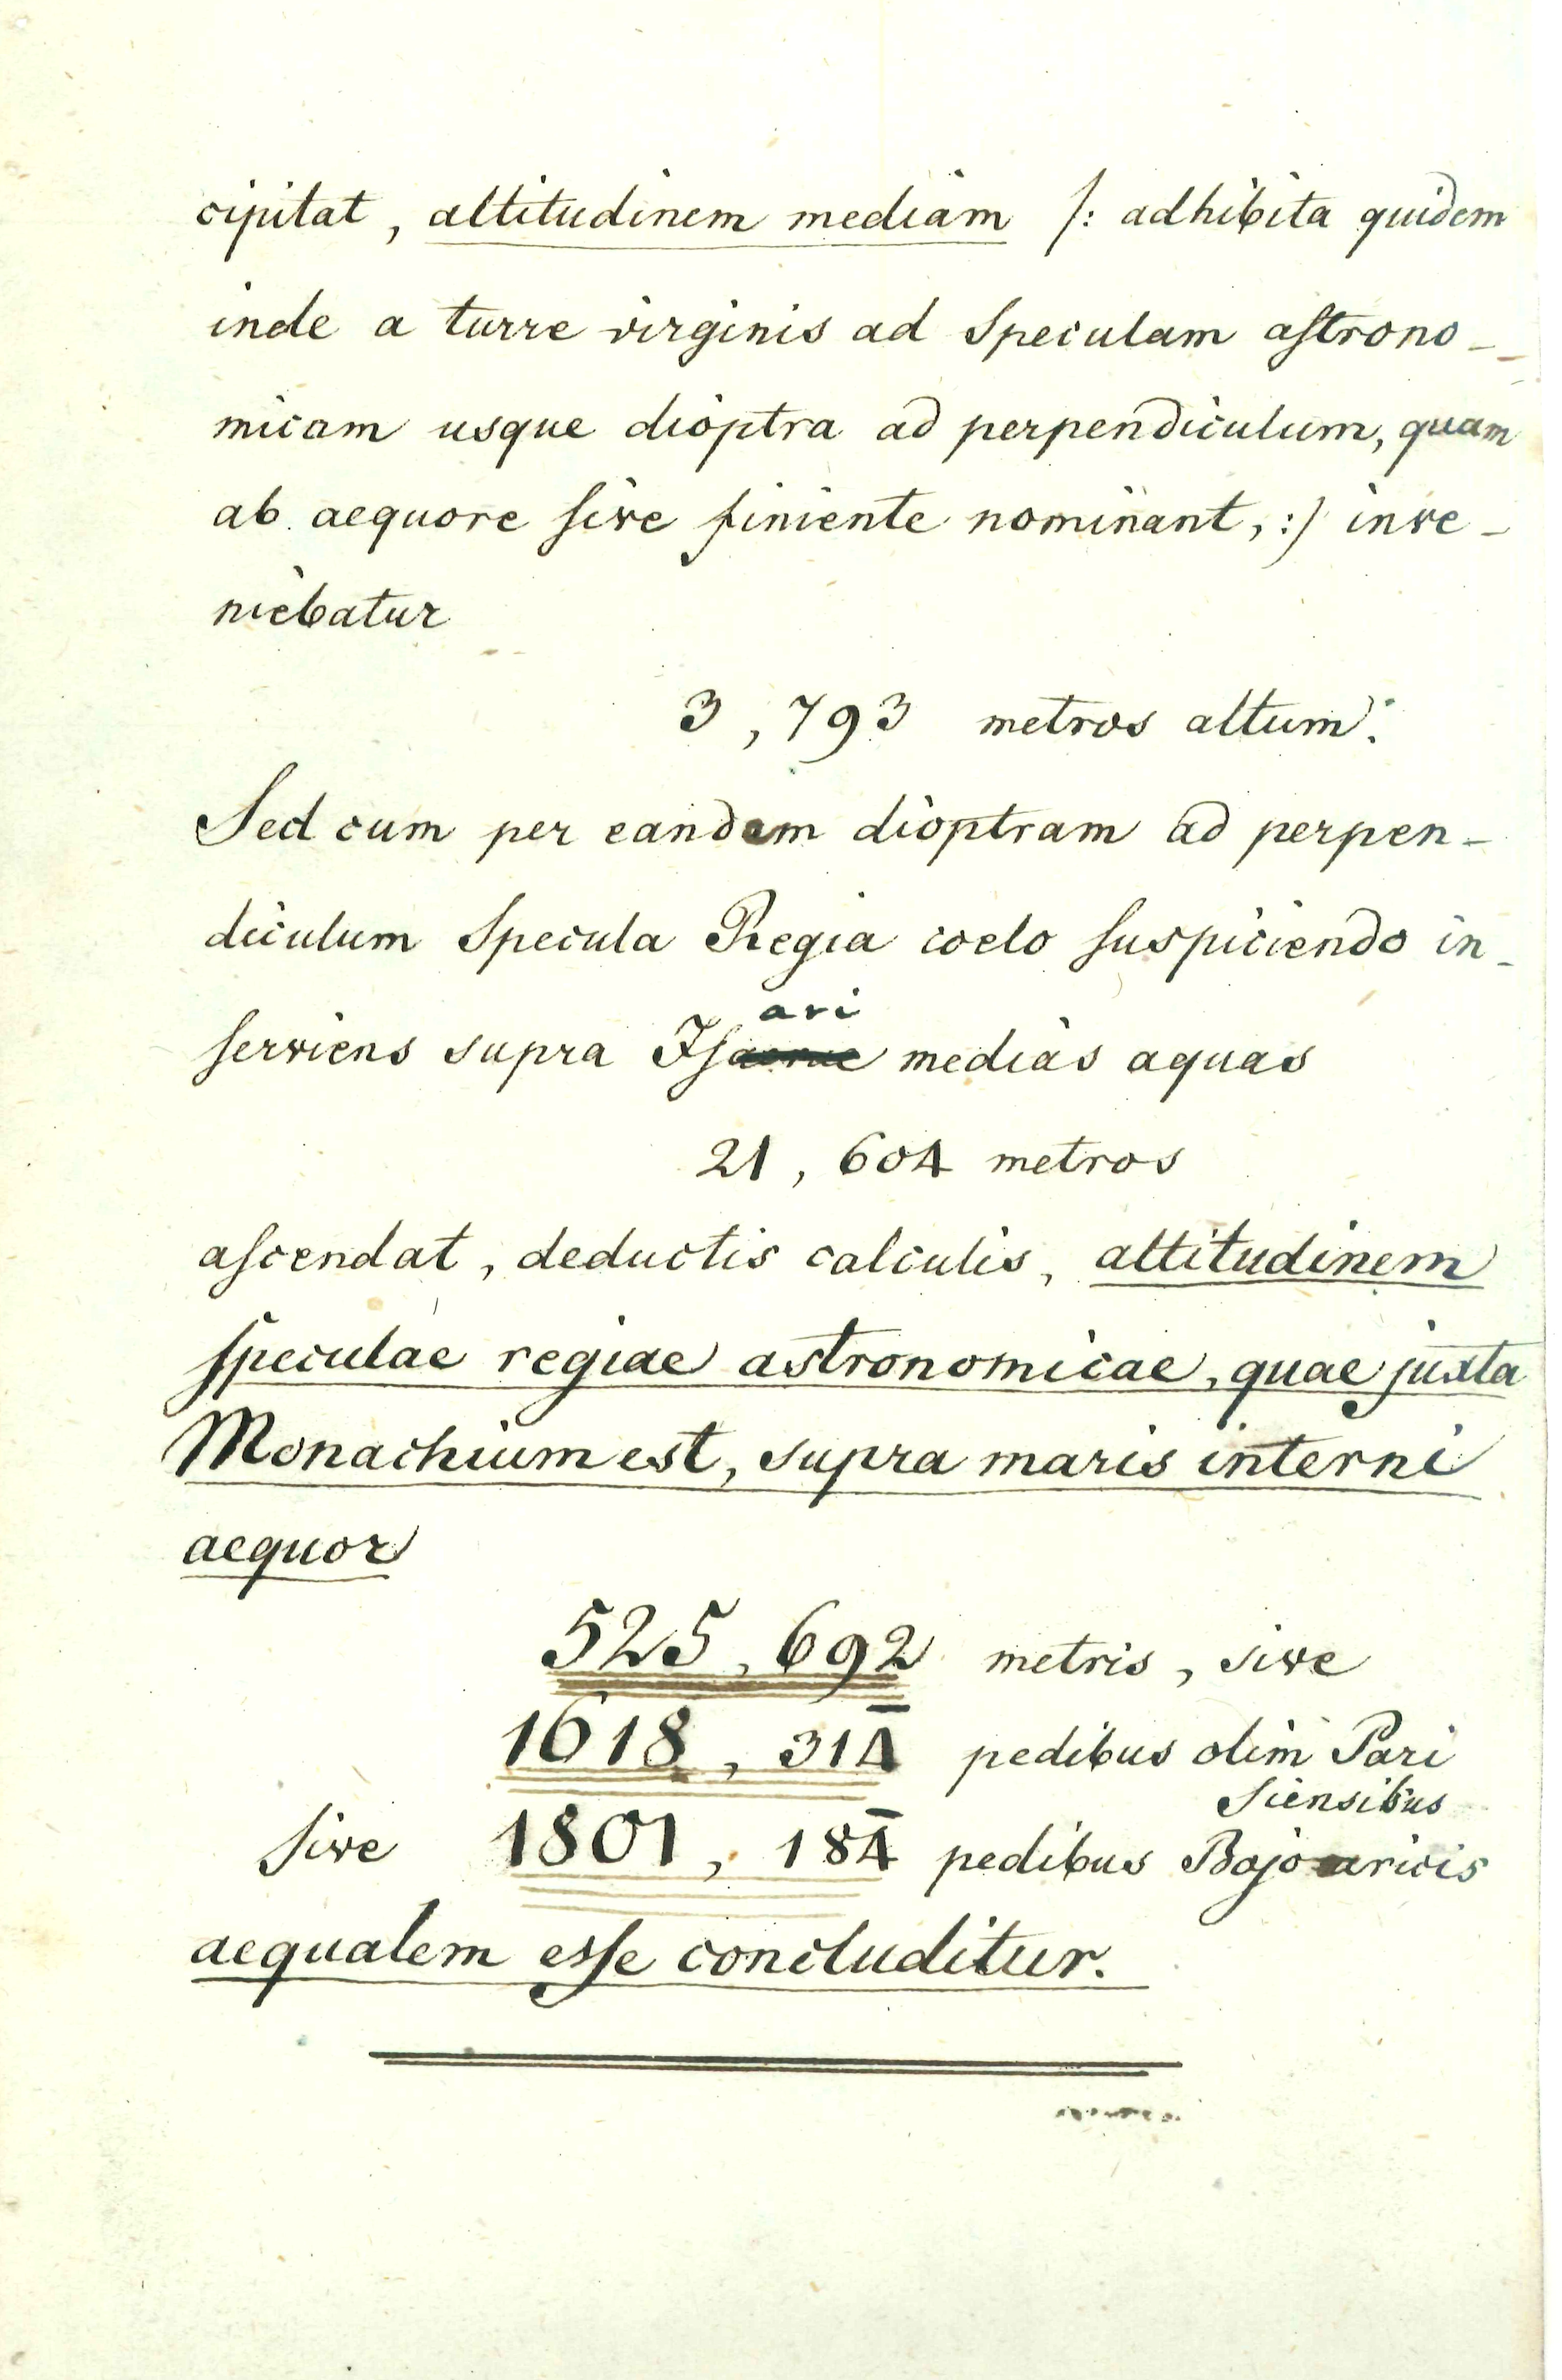 cipitat, altitudinem mediam /: adhibita quidem
inde a turre virginis ad Speculam astrono-
micam usque dioptra ad perpendiculum, quam
ab aequore sive finiente nominant, :/ inve-
niebatur
3,793 metros altum:
Sed cum per eandem dioptram ad perpen-
diculum Specula Regia coelo suspiciendo in-
ari
serviens supra Is medias aquas
21,604 metros
ascendat, deductis calculis, altitudinem
speculae regiae astronomicae, quae juxta
Monachium est, supra maris interni
aequor
525,692 metris, sive
1618,314 pedibus olim Pari
siensibus
sive 1801,184 pedibus Bojoaricis
aequalem esse concluditur.